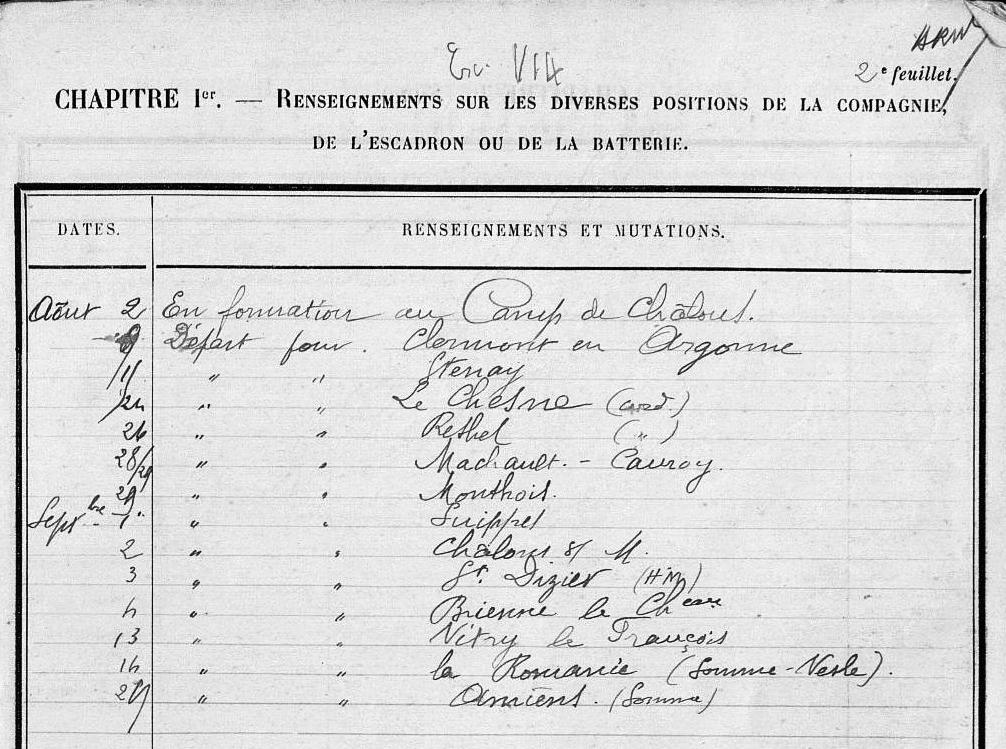 Esc VIA
2e feuillet.
CHAPITRE Ier. — RENSEIGNEMENTS SUR LES DIVERSES POSITIONS DE LA COMPAGNIE,
DE L'ESCADRON OU DE LA BATTERIE.
DATES. RENSEIGNEMENTS ET MUTATIONS.
Août 2 En formation au Camp de Châlons.
9 Départ pour. Clermont en Argonne
11 " " Stenay
24 " " Le Chesne (ard.)
26 " " Rethel (")
28/29 " " Machault. - Cauroy.
29 " " Monthois.
Septbre 1er " " Suippes
2 " " Châlons s/ M.
3 " " St. Dizier (Hm)
4 " " Brienne le Cheau
13 " " Vitry le François
14 " " la Romanie (Somme-Vesle).
" " Amiens. (Somme)